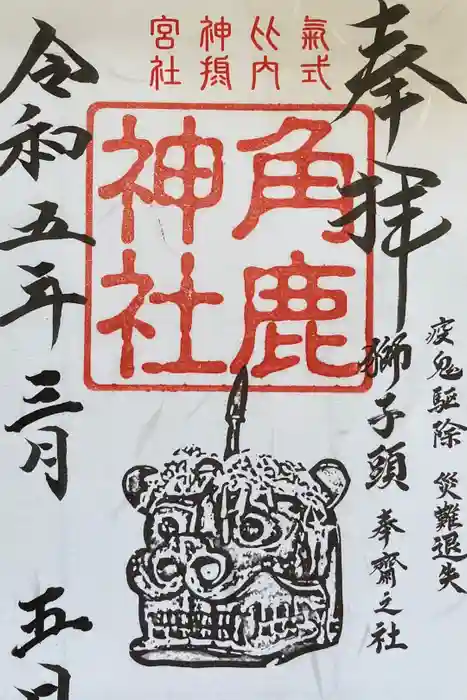 氣比神宮
式内摂社
奉拝
角鹿
神社
疫鬼驅除 災難退失
獅子頭 奉齋之社
令和五年三月五日